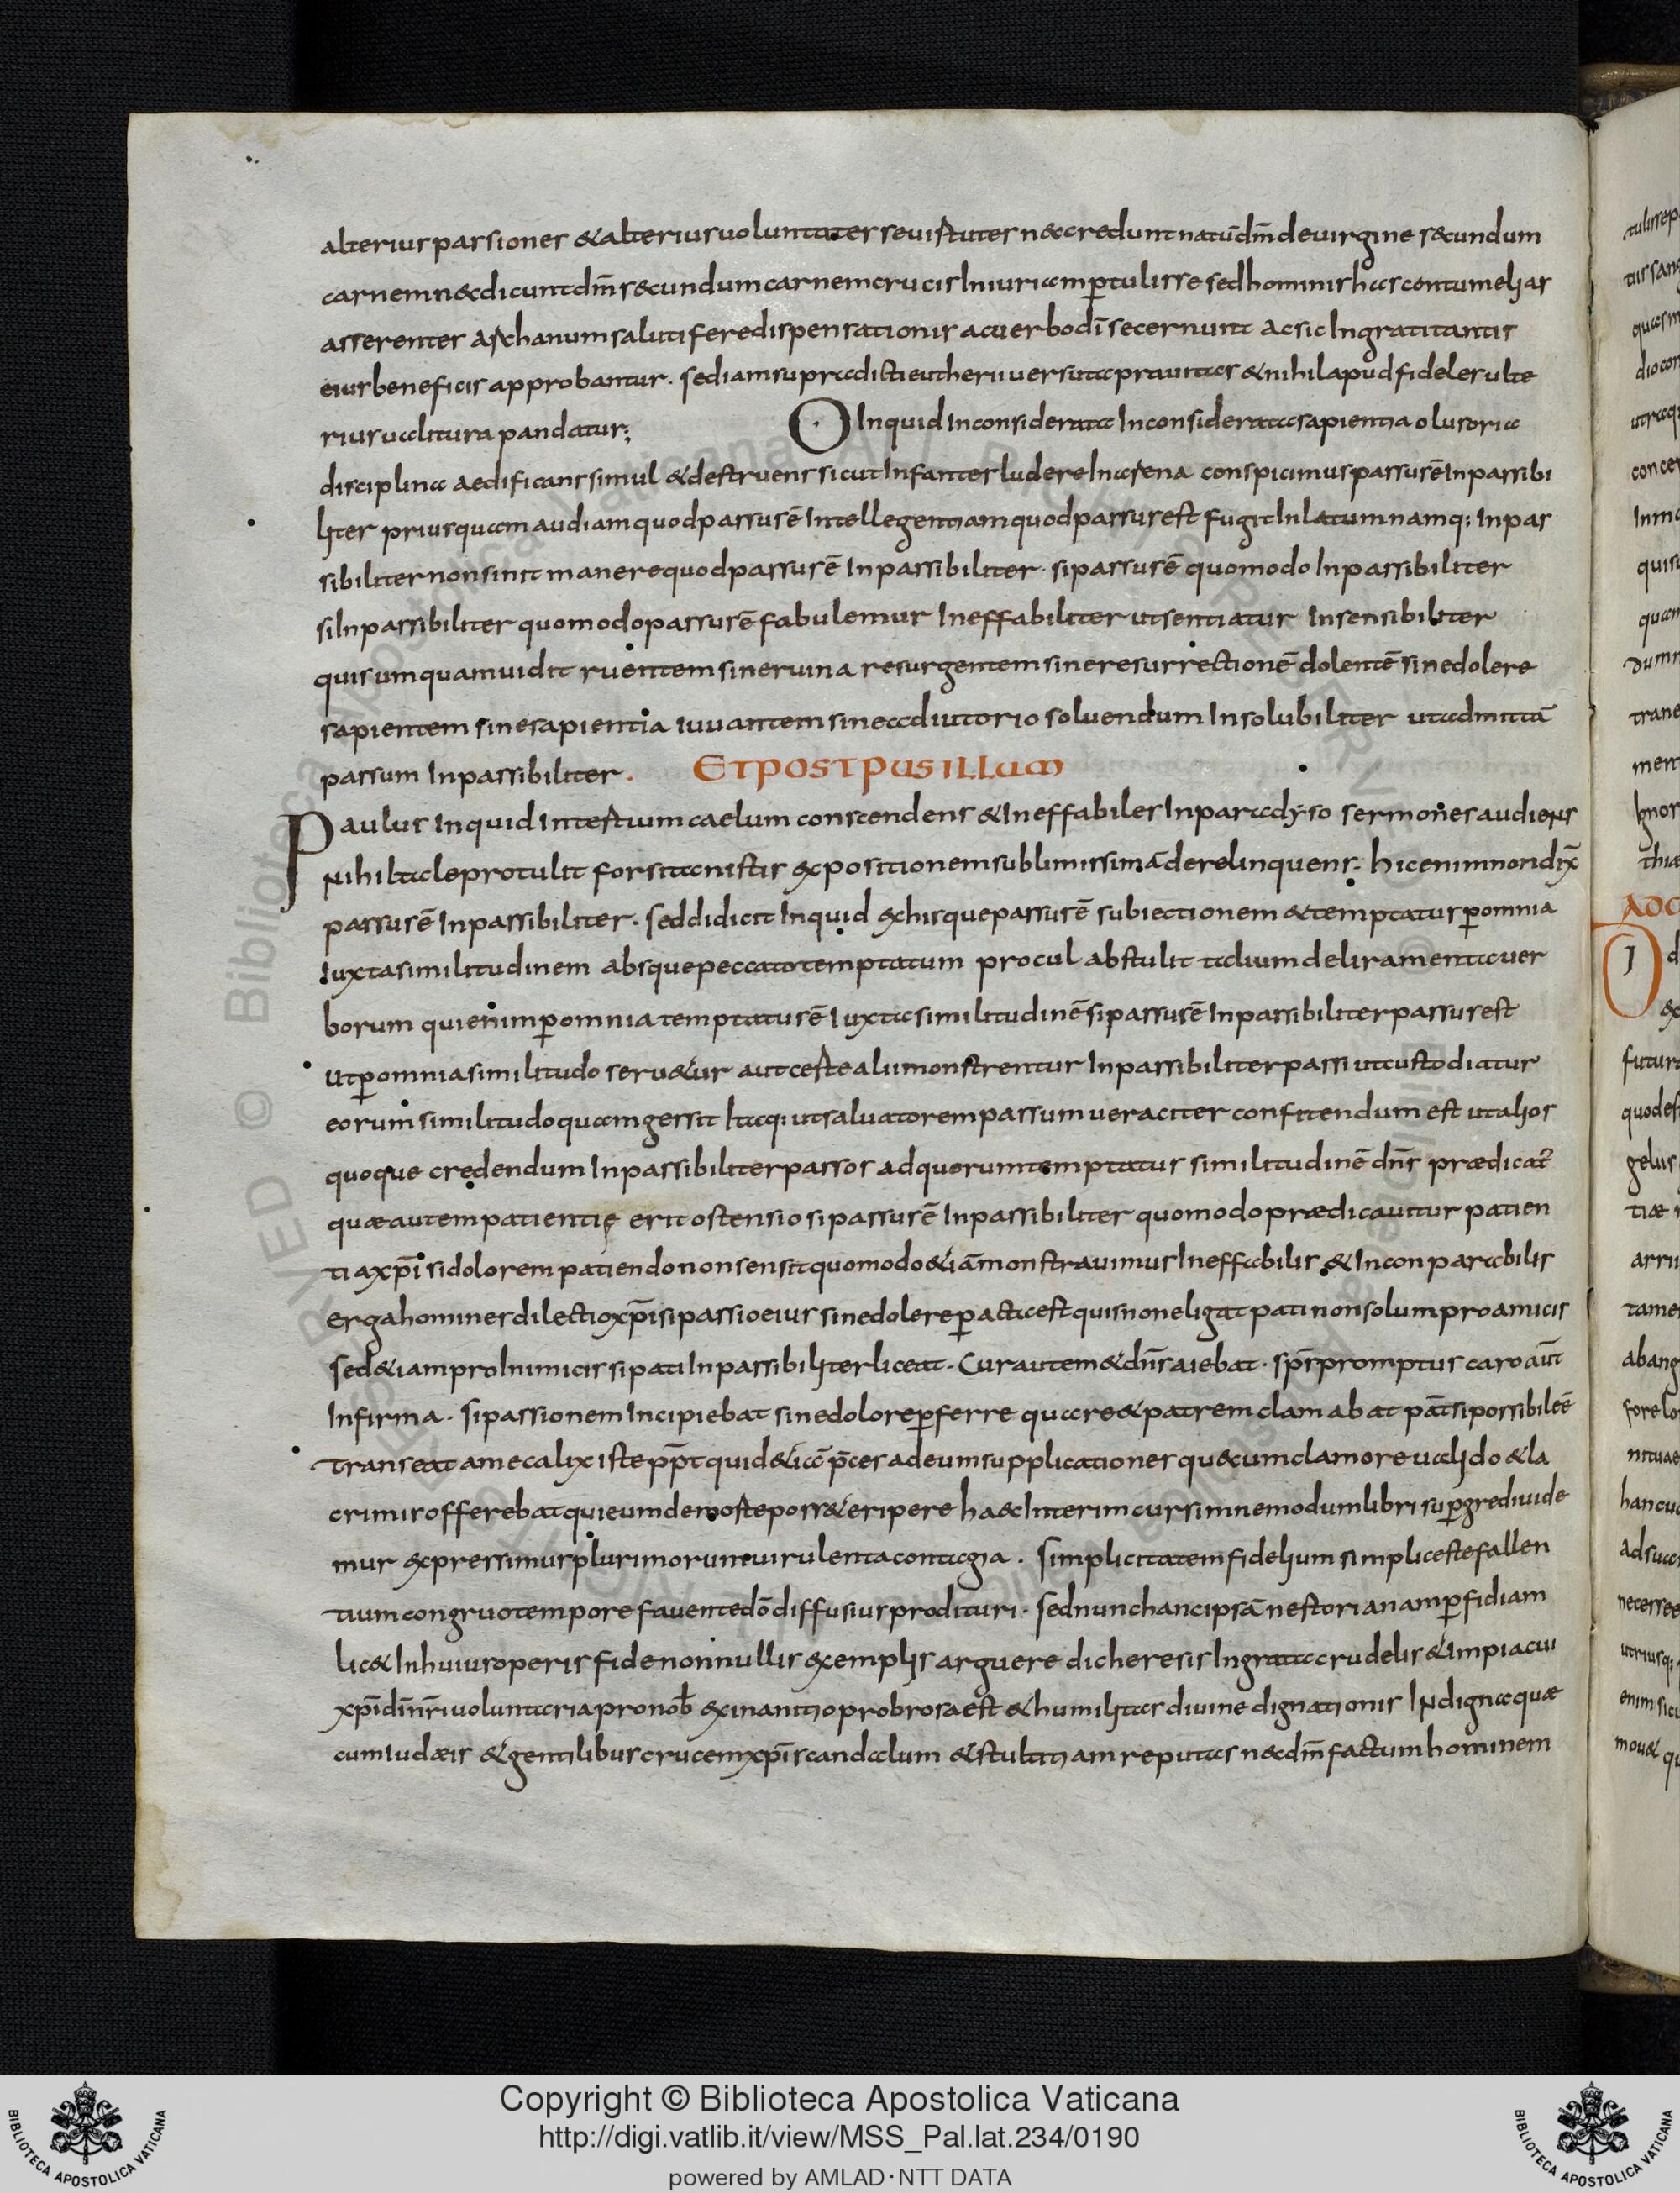 alterius passiones & alterius voluntates se uistutes n&credunt natū dm̄ de uirgine s&cundum
carnem n&c dicunt dm̄ s&cundum carnem crucis Iniuriam ptulisse sed hominis has contumelias
asserentes aschanum salutifere dispensationis a cuerbo dī secernunt ac sic Ingratitantis
eius beneficiis approbantur. sed iam supra dicti eutherii uersuta prauitas & nihil apud fideles ulte
rius ualitura pandatur;
O Inquid Inconsiderata Inconsiderata sapientia o lusoria
disciplina aedificans simul & destruens sicut Infantes ludere In asena conspicimus passus ē Inpassibi
liter priusquam audiam quod passus ē Intellegentiam quod passus est fugit Inlatum namq: Inpas
sibiliter non sinit manere quod passus ē Inpassibiliter. si passus ē quomodo Inpassibiliter
si Inpassibiliter quomodo passus ē fabulemur Ineffabiliter ut sentiatur Insensibiliter
quis umquam uidit ruentem sine ruina resurgentem sine resurrectionē dolentē sine dolere
sapientem sine sapientia iuuantem sine adiutorio soluendum Insolubiliter ut admittā
passum Inpassibiliter. ET POST PUSILLUM
Paulus Inquid In testium caelum conscendens & Ineffabiles In paradyso sermones audiens
Nihil tale protulit forsitan istis expositionem sublimissimā derelinquens. hic enim non dix̄
passus ē Inpassibiliter. sed didicit Inquid ex his que passus ē subiectionem & temptatus p omnia
Iuxta similitudinem absque peccato temptatum procul abstulit tedium deliramenta uer
borum qui enim p omnia temptatus ē Iuxta similitudinē si passus ē Inpassibiliter passus est
ut p omnia similitudo seru&ur aut ceste alii monstrentur Inpassibiliter passi ut custodiatur
eorum similitudo quam gessit Itaq: ut saluatorem passum ueraciter confitendum est ut alios
quoque credendum Inpassibiliter passos ad quorum temptatus similitudinē dn̄s prædicat̄
quæ autem patientię erit ostensio si passus ē Inpassibiliter quomodo prædicauitur patien
tia xpī si dolorem patiendo non sensit quomodo &iā monstrauimus Ineffabilis & Inconparabilis
erga homines dilectio xpī si passio eius sine dolere p acta est quis non eligat pati non solum pro amicis
sed &iam pro Inimicis si pati Inpassibiliter liceat. Cur autem & dn̄s aiebat. sps̄ promptus caro aūt
Infirma. si passionem Incipiebat sine dolore pferre quare & patrem clamabat pat̄ si possibile ē
transeat a me calix iste pp̄t quid &iā p̄ces ad eum supplicationes qu& cum clamore ualido & la
crimis offerebat qui eum de moste poss& eripere ha&c Interim cursim ne modum libri supgrediuide
mur expressimus plurimorum uirulenta contagia. simplicitatem fidelium simpliceste fallen
tium congruo tempore fauente dō diffusius prodituri. sed nunc hanc ipsā nestorianam pfidiam
lic& In huius operis fide nonnullis exemplis arguere dic heresis Ingrata crudelis & impia cui
xpī dī nr̄i uoluntaria pro nob̄ exinanitio probrosa est & humilitas diuine dignationis Indigna quæ
cum iudæis & gentilibus crucem xpī scandalum & stultitiam reputas n&c dm̄ factum hominem
Copyright © Biblioteca Apostolica Vaticana
http://digi.vatlib.it/view/MSS_Pal.lat.234/0190
powered by AMLAD·NTT DATA